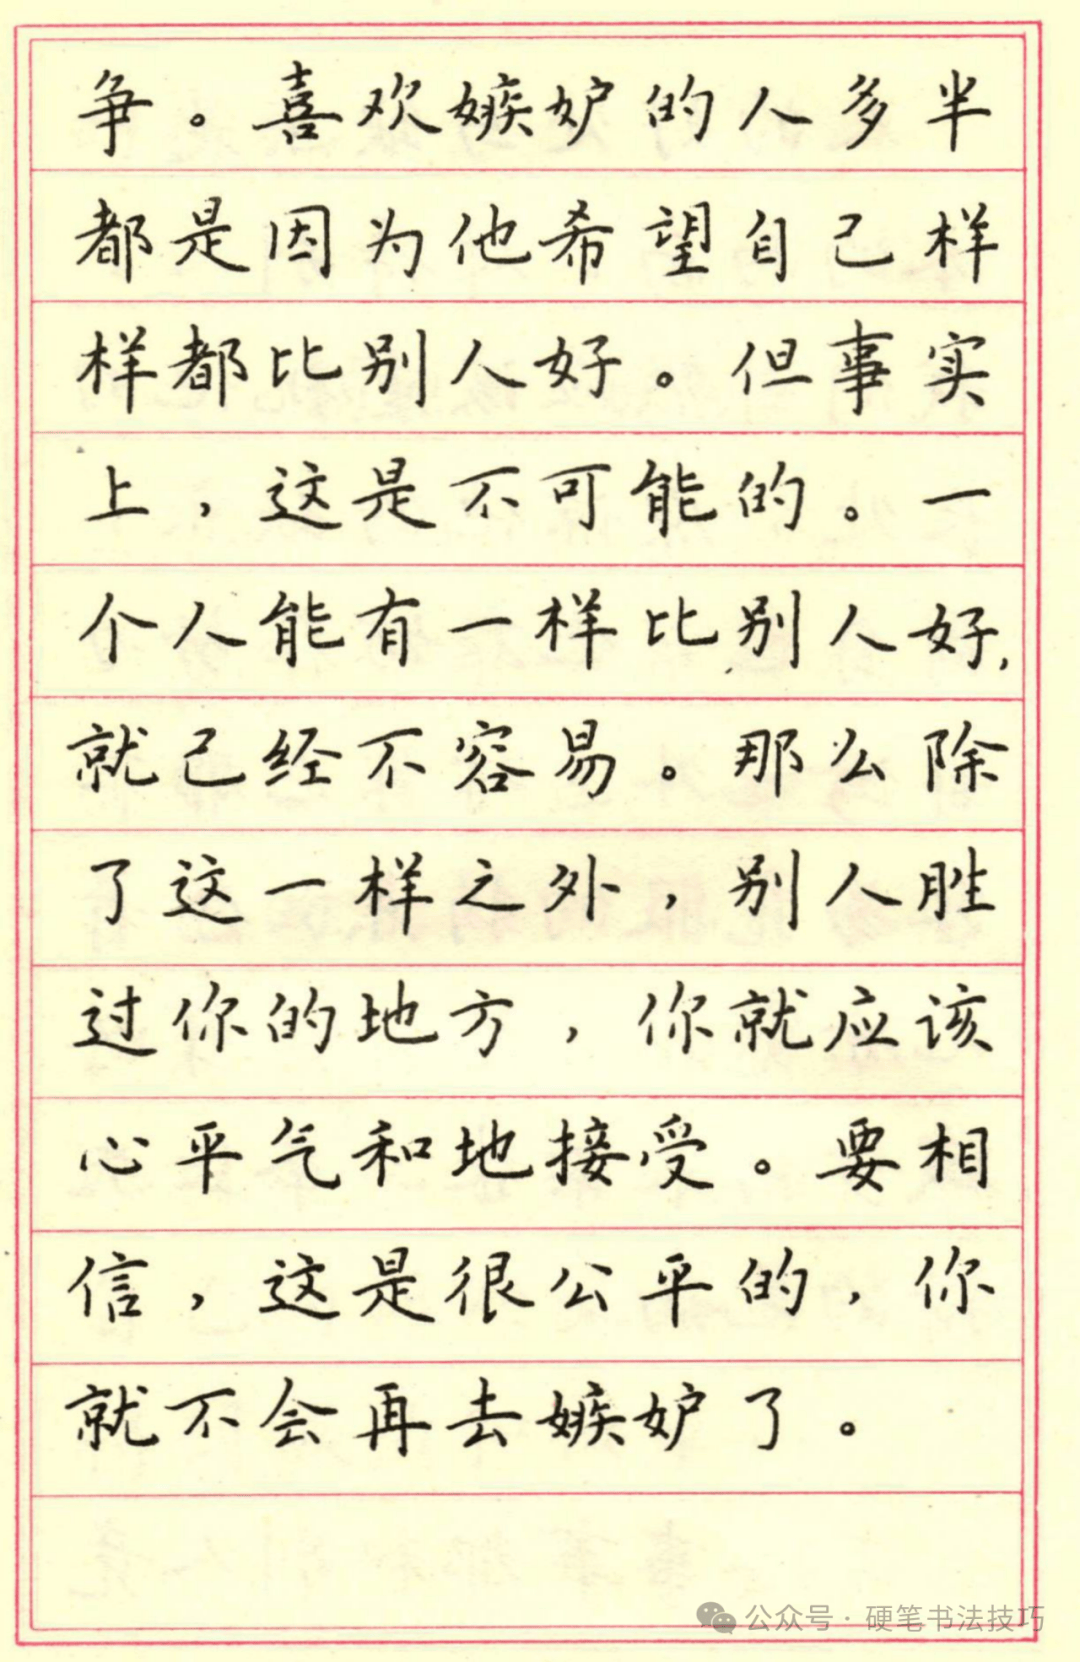 争。喜欢嫉妒的人多半
都是因为他希望自己样
样都比别人好。但事实
上，这是不可能的。一
个人能有一样比别人好，
就已经不容易。那么除
了这一样之外，别人胜
过你的地方，你就应该
心平气和地接受。要相
信，这是很公平的，你
就不会再去嫉妒了。
公众号·硬笔书法技巧